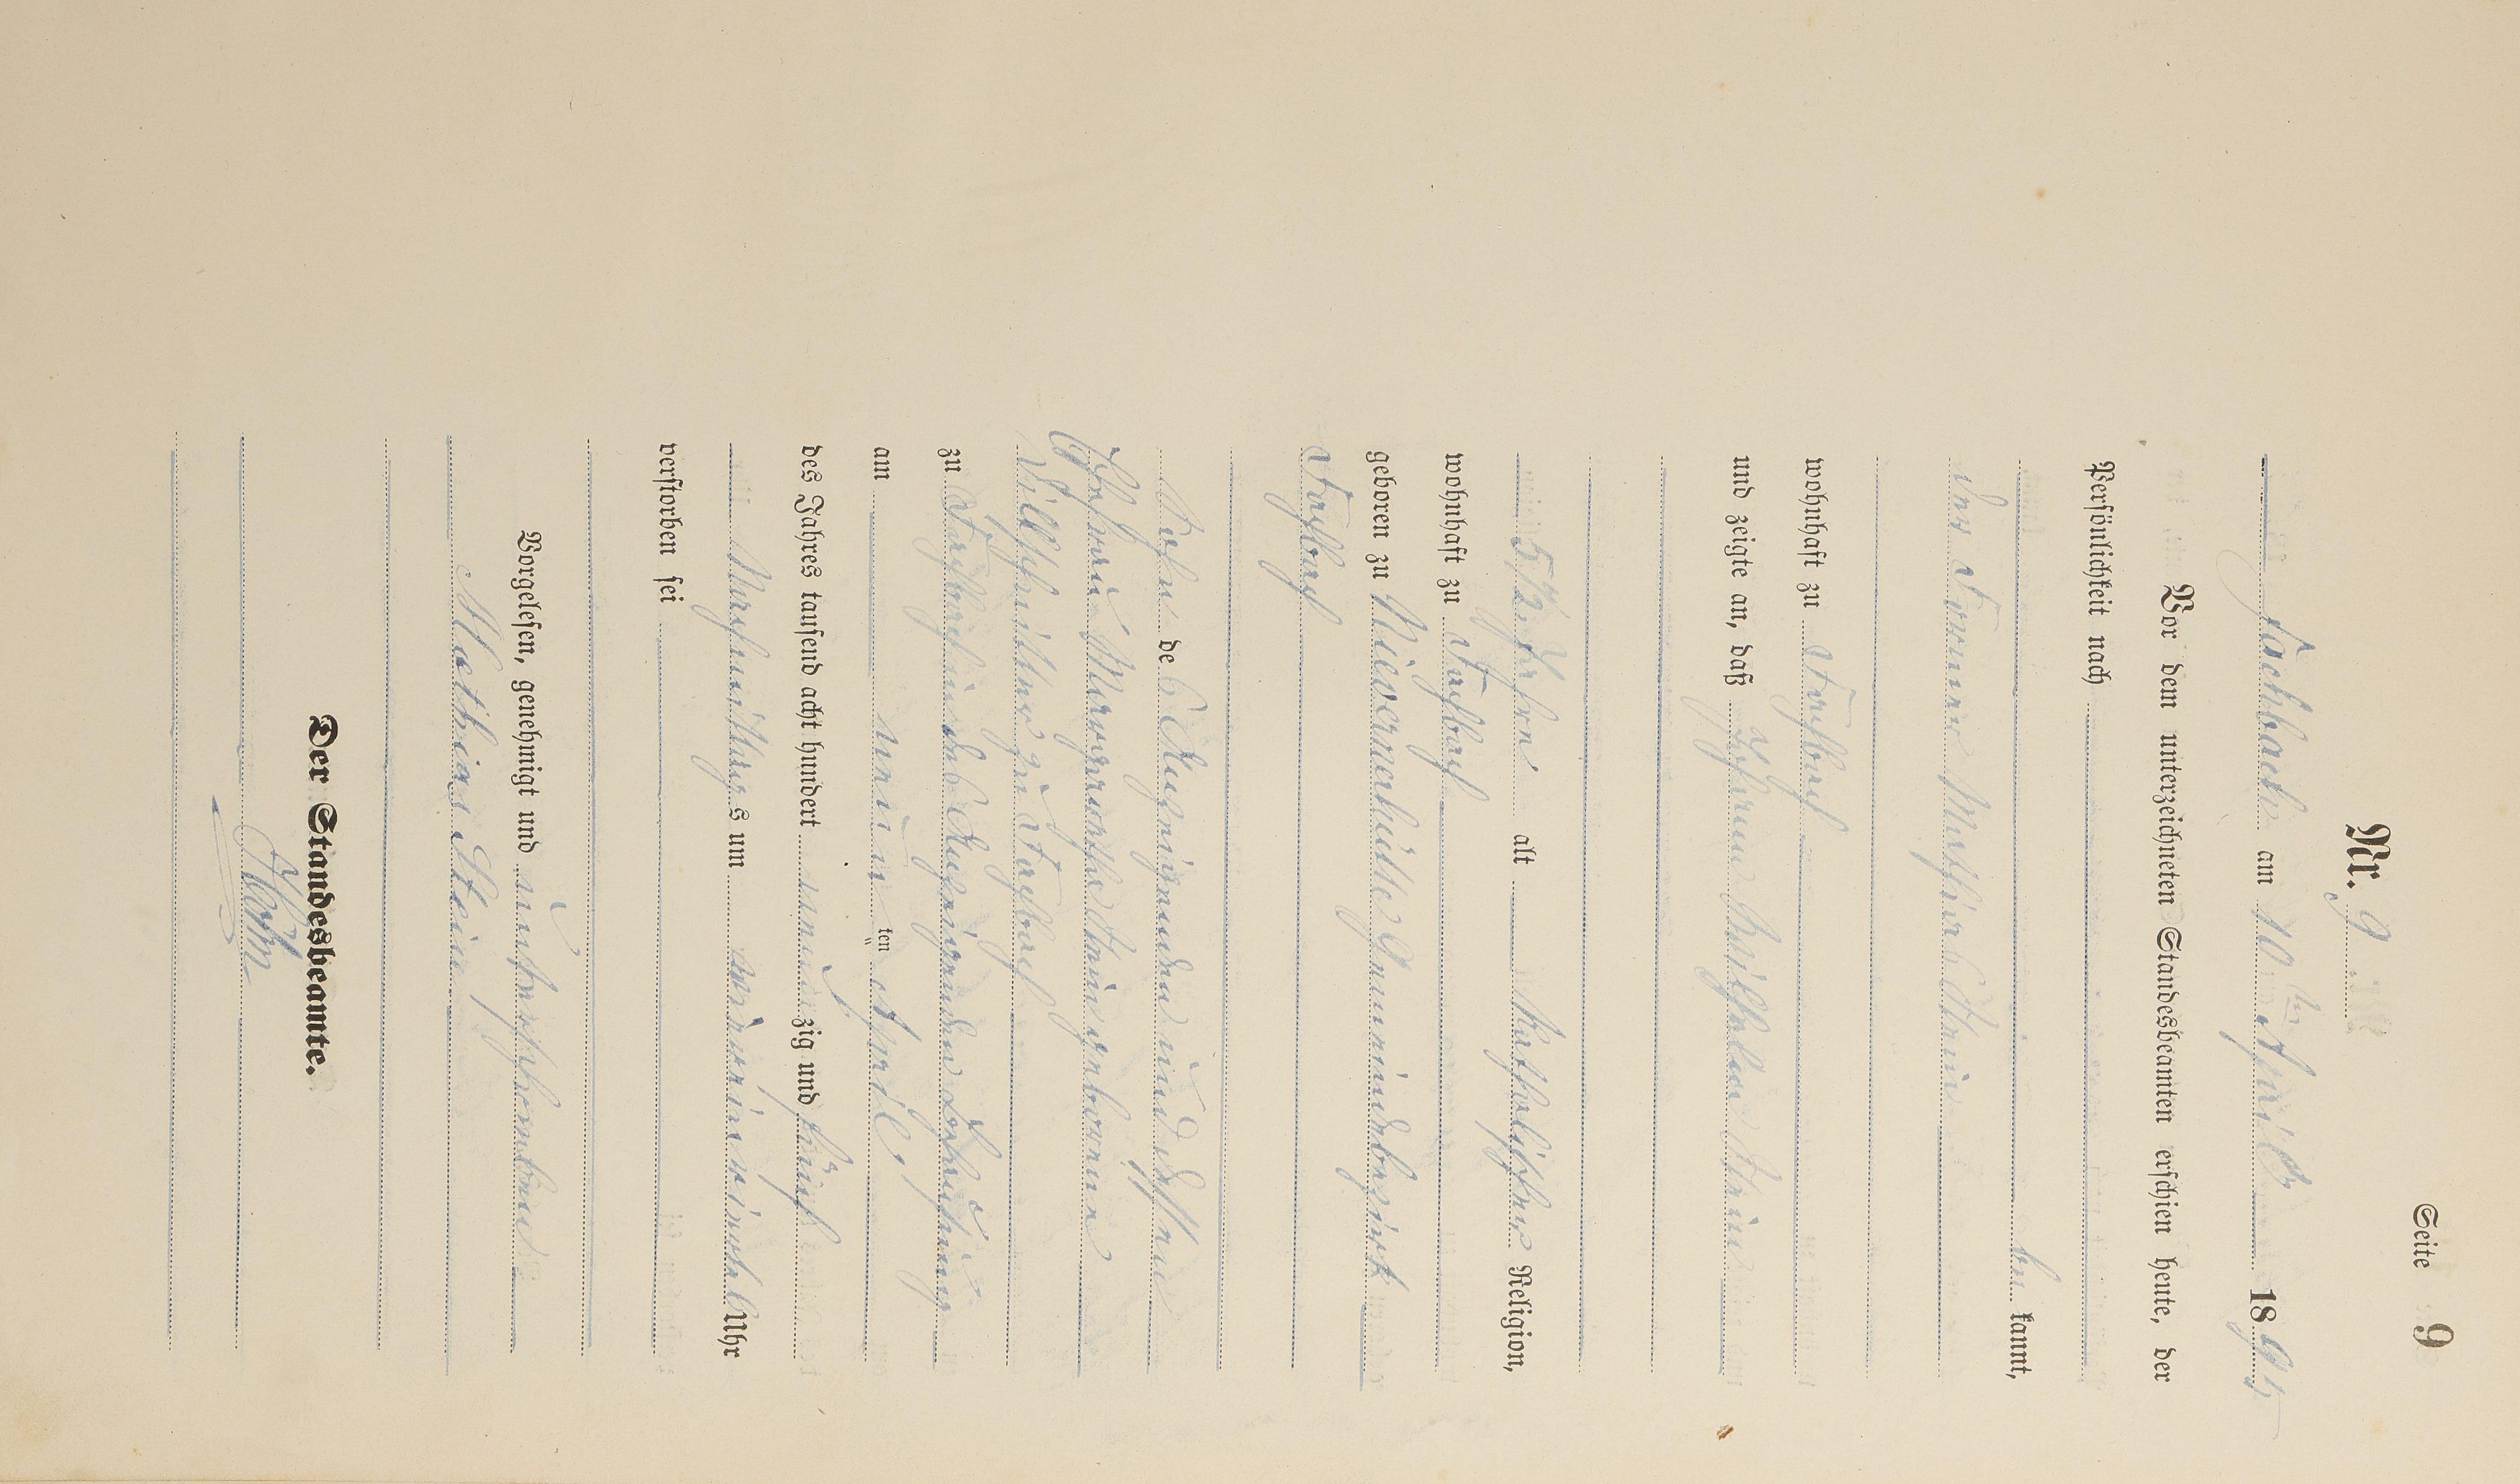 Seite 9
Nr. 9
Fischbach am 10ten April 1895
Vor dem unterzeichneten Standesbeamten erschien heute, der
Persönlichkeit nach
be kannt,
der Former Mathias Stein
wohnhaft zu Fischbach
und zeigte an, daß Johann Wilhelm Stein
5 1/2 Jahre alt katholischer Religion,
wohnhaft zu Fischbach
geboren zu
Fischbach
Sohn des Anzeigenden und dessen
Ehefrau Margaretha Stein geborenen
zu Fischbach
zu Fischbach in des Anzeigenden Behausung
am neunten April
des Jahres tausend acht hundert neunzig und fünf
Vormittags um Uhr
verstorben sei
Vorgelesen, genehmigt und unterschrieben
Mathias Stein
Der Standesbeamte.